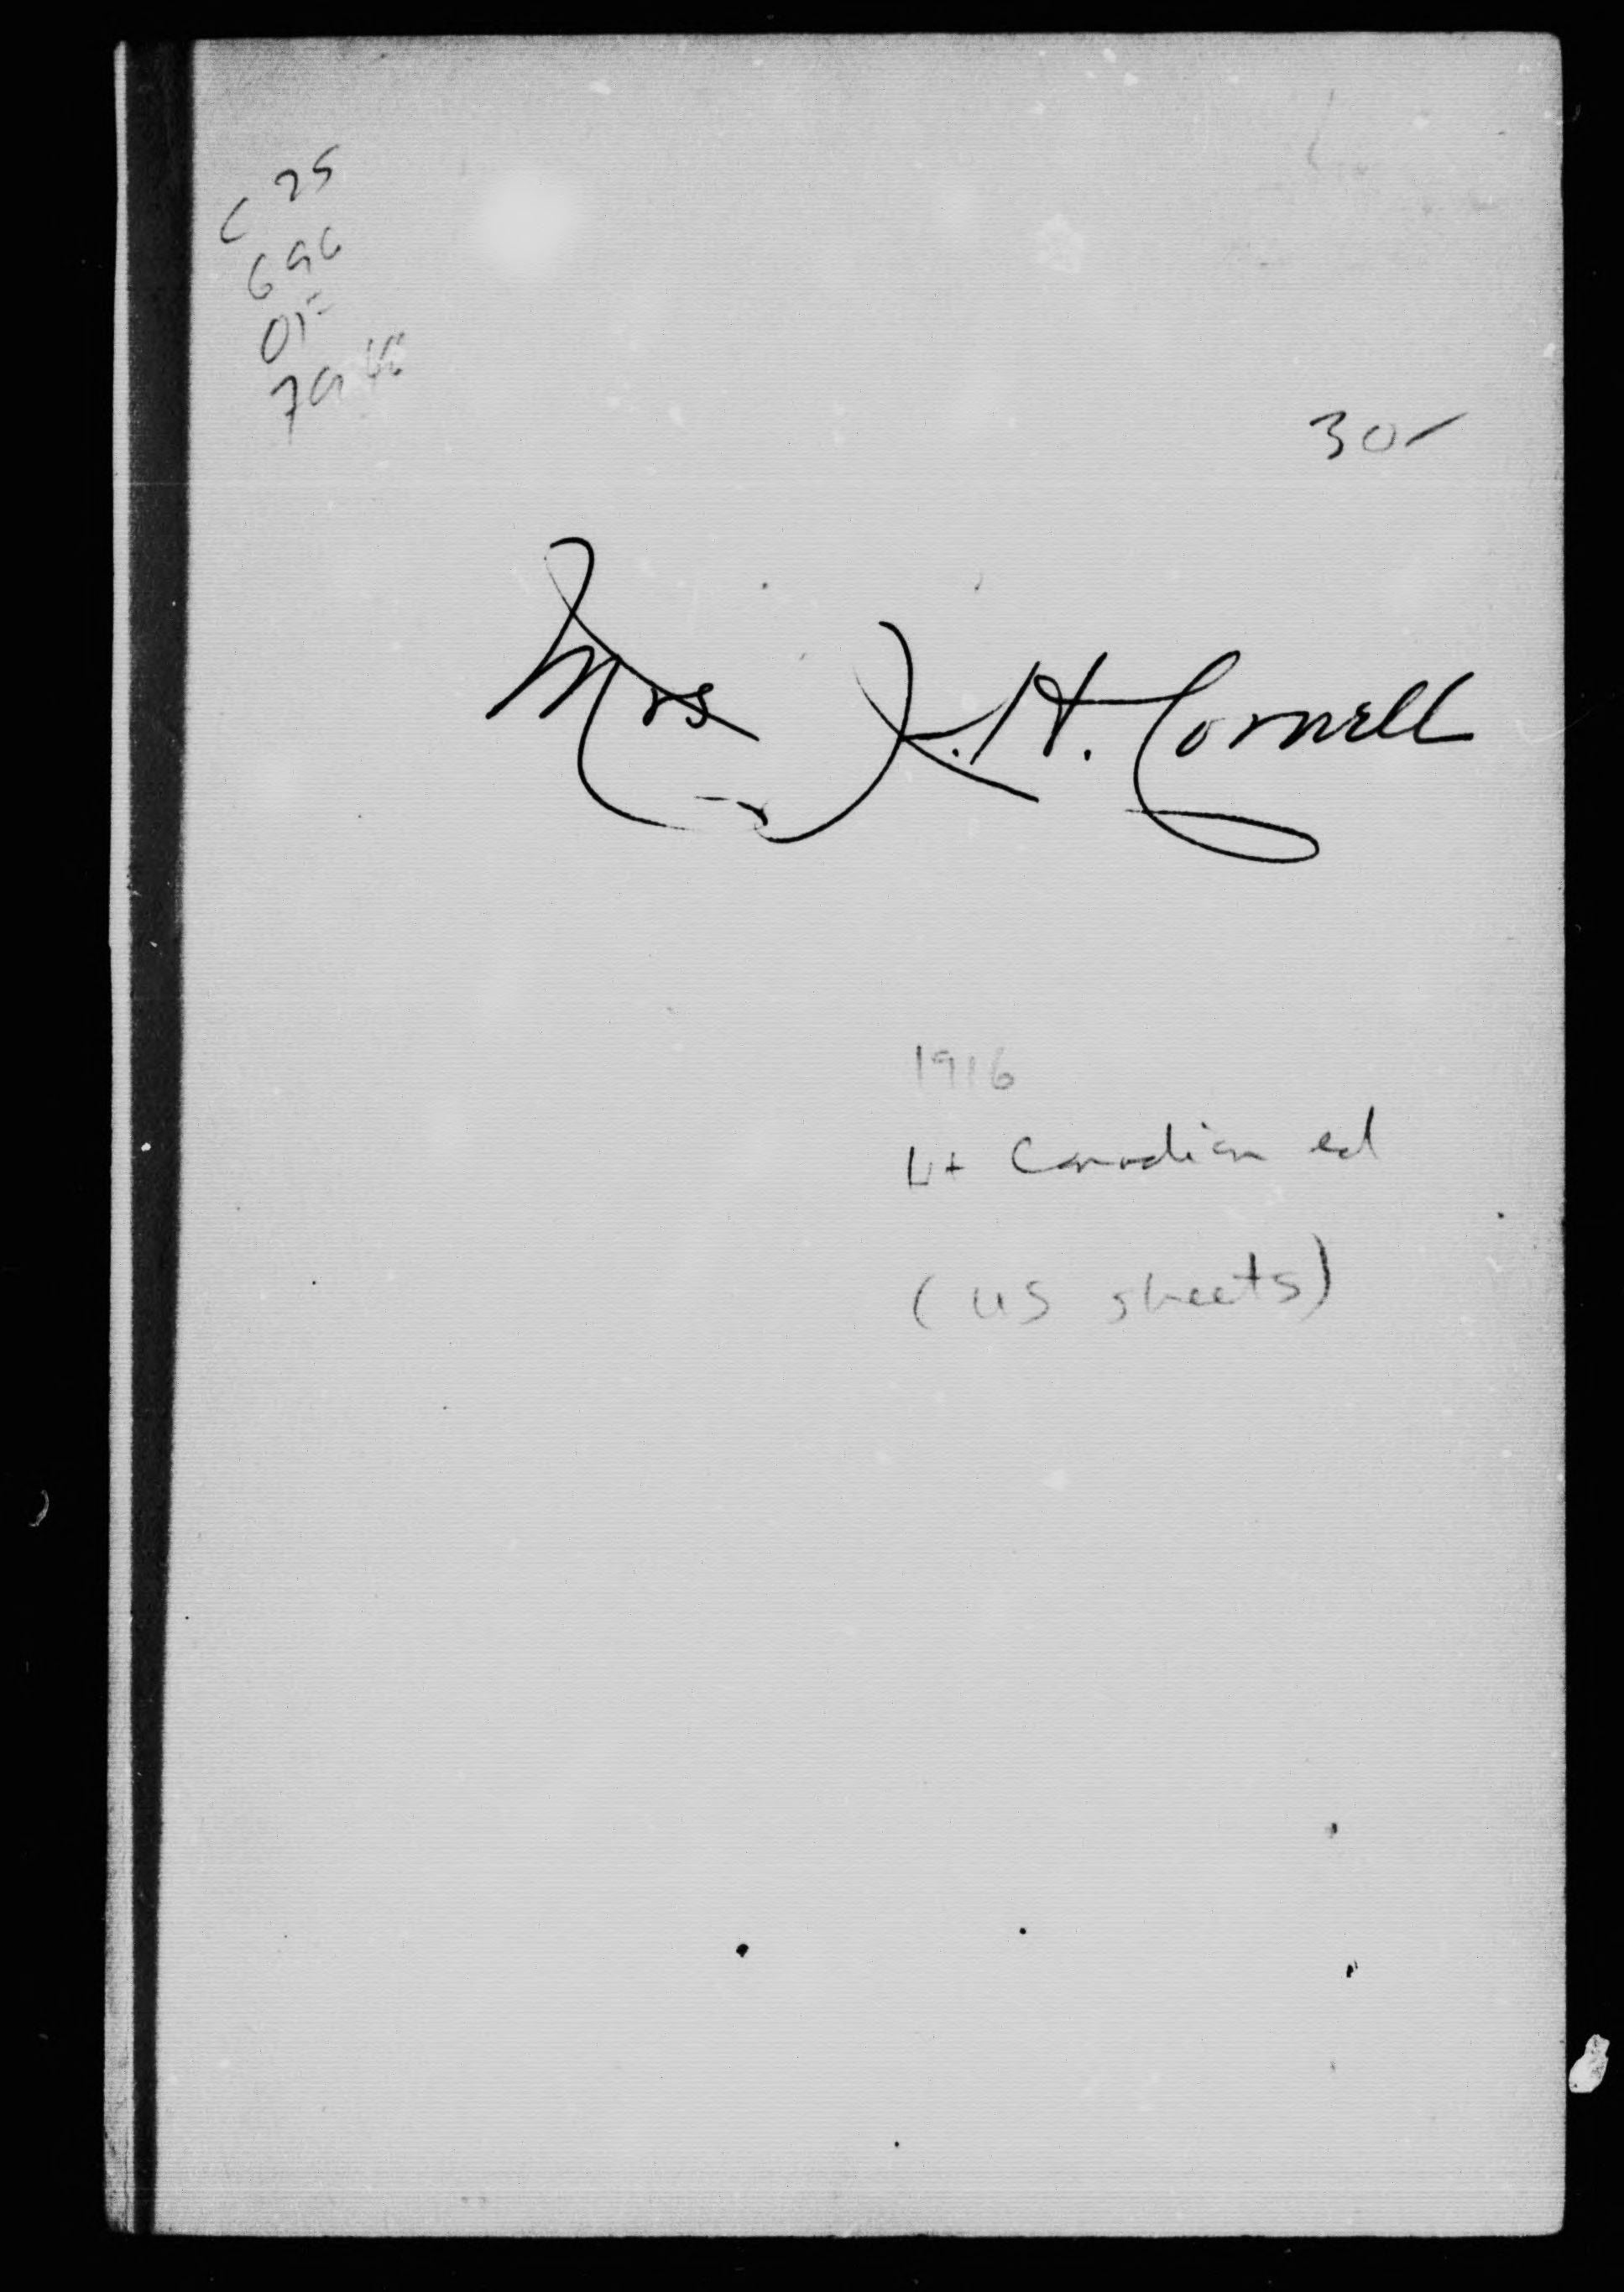 C 25
30-
Mrs K. H. Cornell
1916
1st Canadian ed
(US sheets)